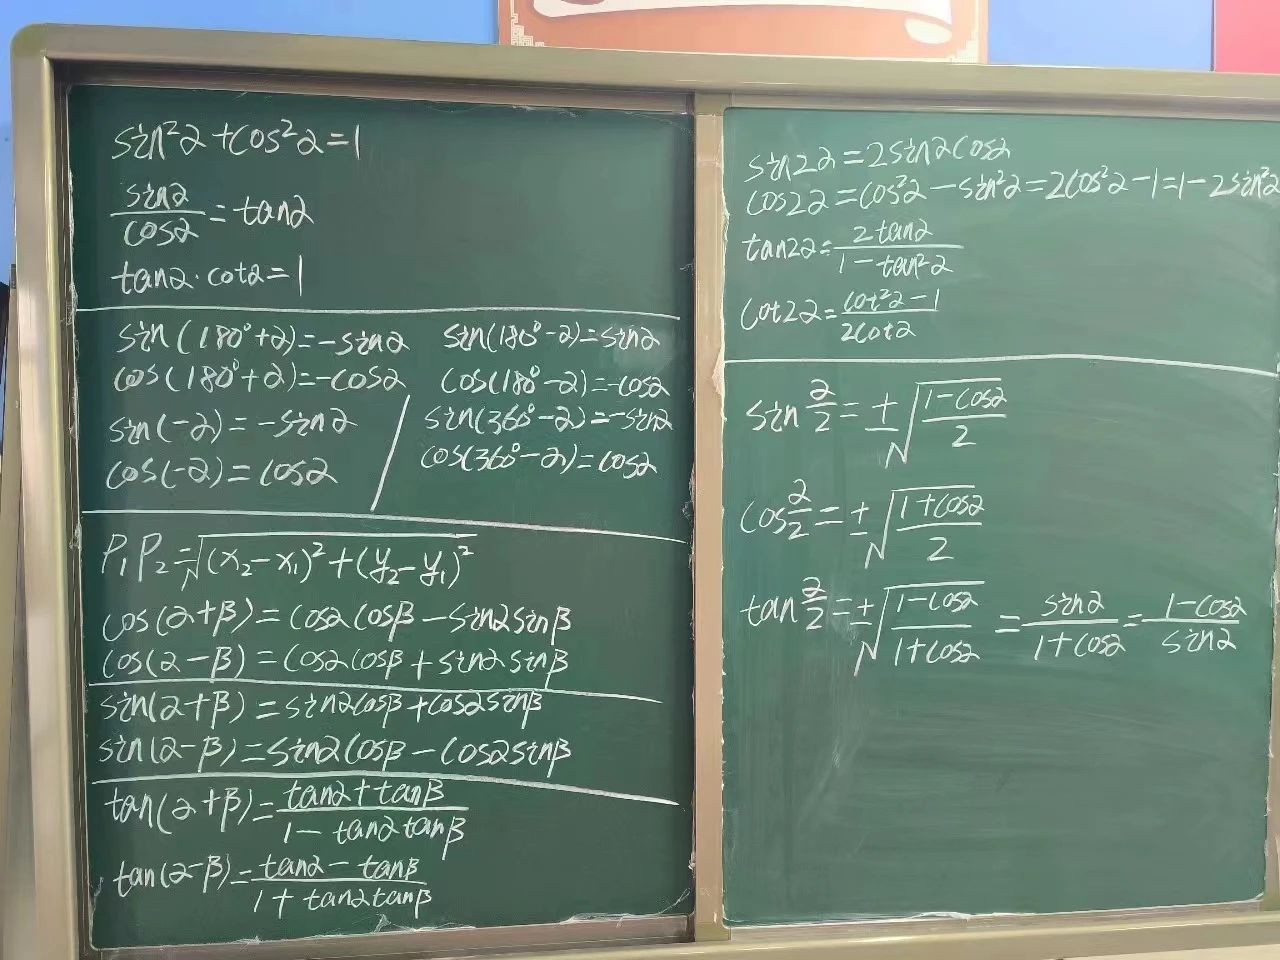 sin²α+cos²α=1
sinα/cosα=tanα
tanα·cotα=1
sin(180°+α)=-sinα
cos(180°+α)=-cosα
sin(-α)=-sinα
cos(-α)=cosα
sin(180°-α)=sinα
cos(180°-α)=-cosα
sin(360°-α)=-sinα
cos(360°-α)=cosα
P₁P₂=√((x₂-x₁)²+(y₂-y₁)²)
cos(α+β)=cosαcosβ-sinαsinβ
cos(α-β)=cosαcosβ+sinαsinβ
sin(α+β)=sinαcosβ+cosαsinβ
sin(α-β)=sinαcosβ-cosαsinβ
tan(α+β)=(tanα+tanβ)/(1-tanαtanβ)
tan(α-β)=(tanα-tanβ)/(1+tanαtanβ)
sin2α=2sinαcosα
cos2α=cos²α-sin²α=2cos²α-1=1-2sin²α
tan2α=2tanα/(1-tan²α)
cot2α=(cot²α-1)/2cotα
sin α/2=±√((1-cosα)/2)
cos α/2=±√((1+cosα)/2)
tan α/2=±√((1-cosα)/(1+cosα))=sinα/(1+cosα)=(1-cosα)/sinα